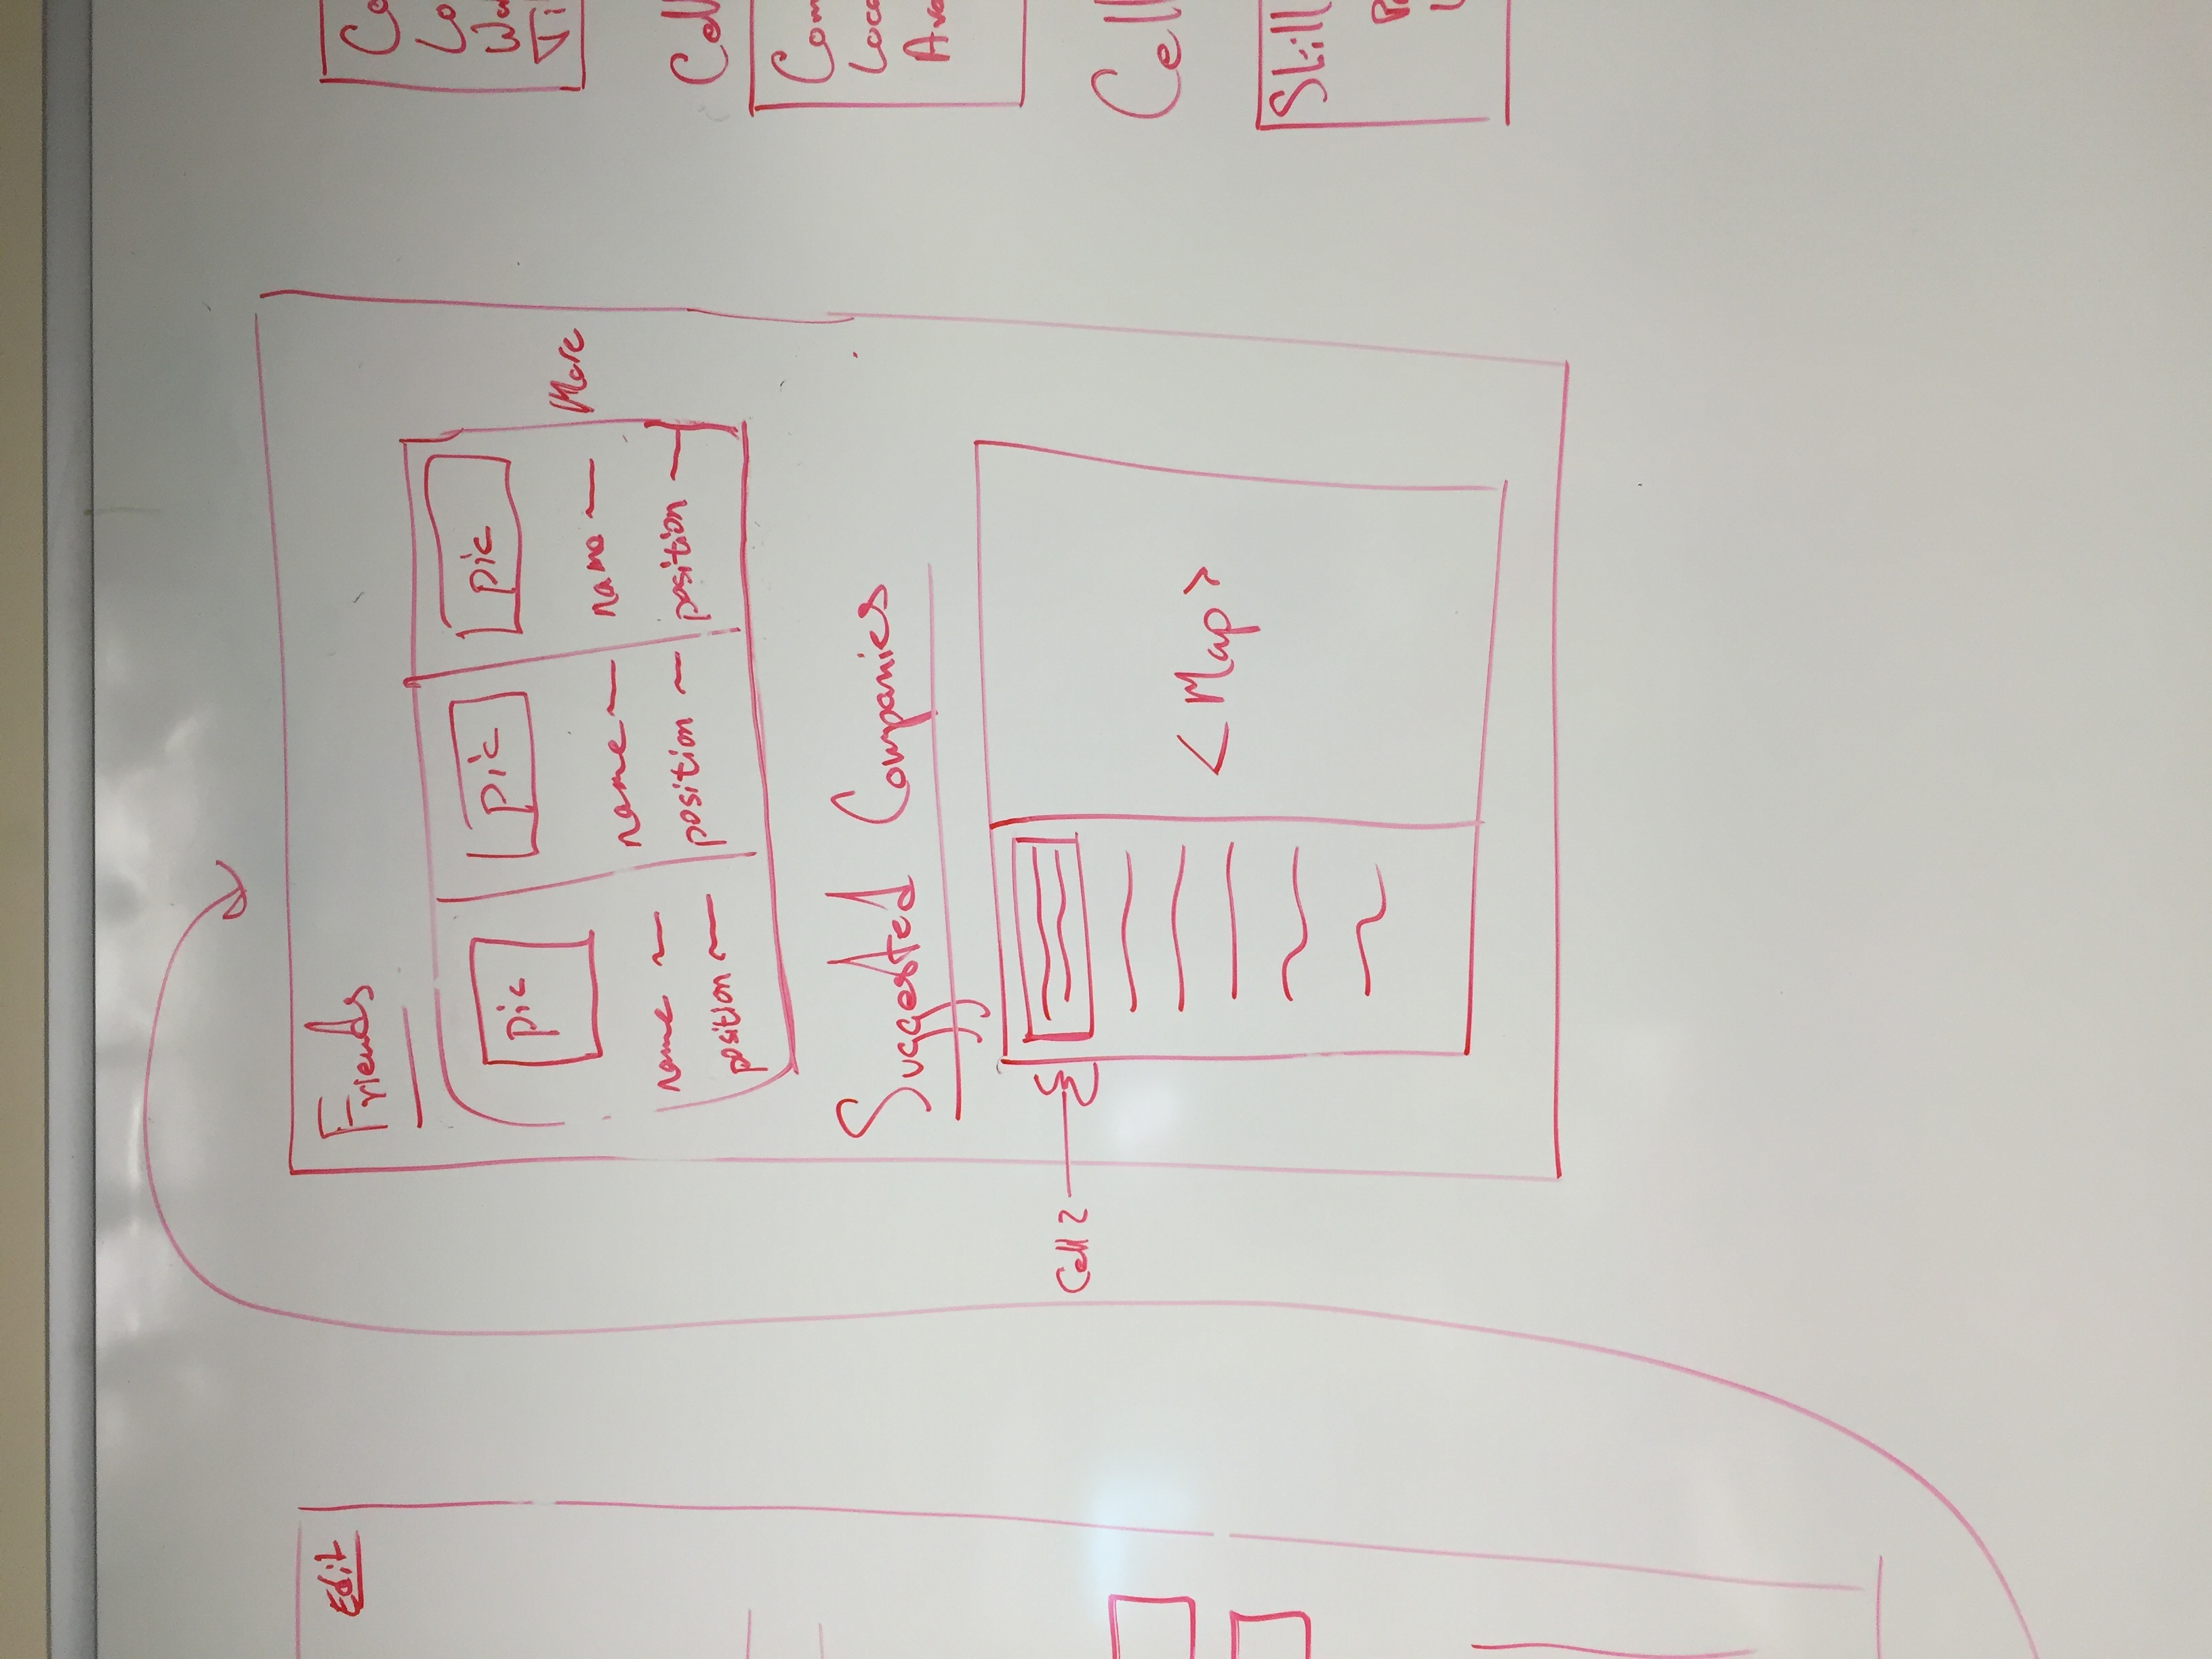 Edit
Friends
pic pic pic
name name name
position position position
More
Suggested Companies
Cell 2
<Map>
Co
Lo
Wa
Ti
Cell
Com
Loca
Ava
Cell
Skill